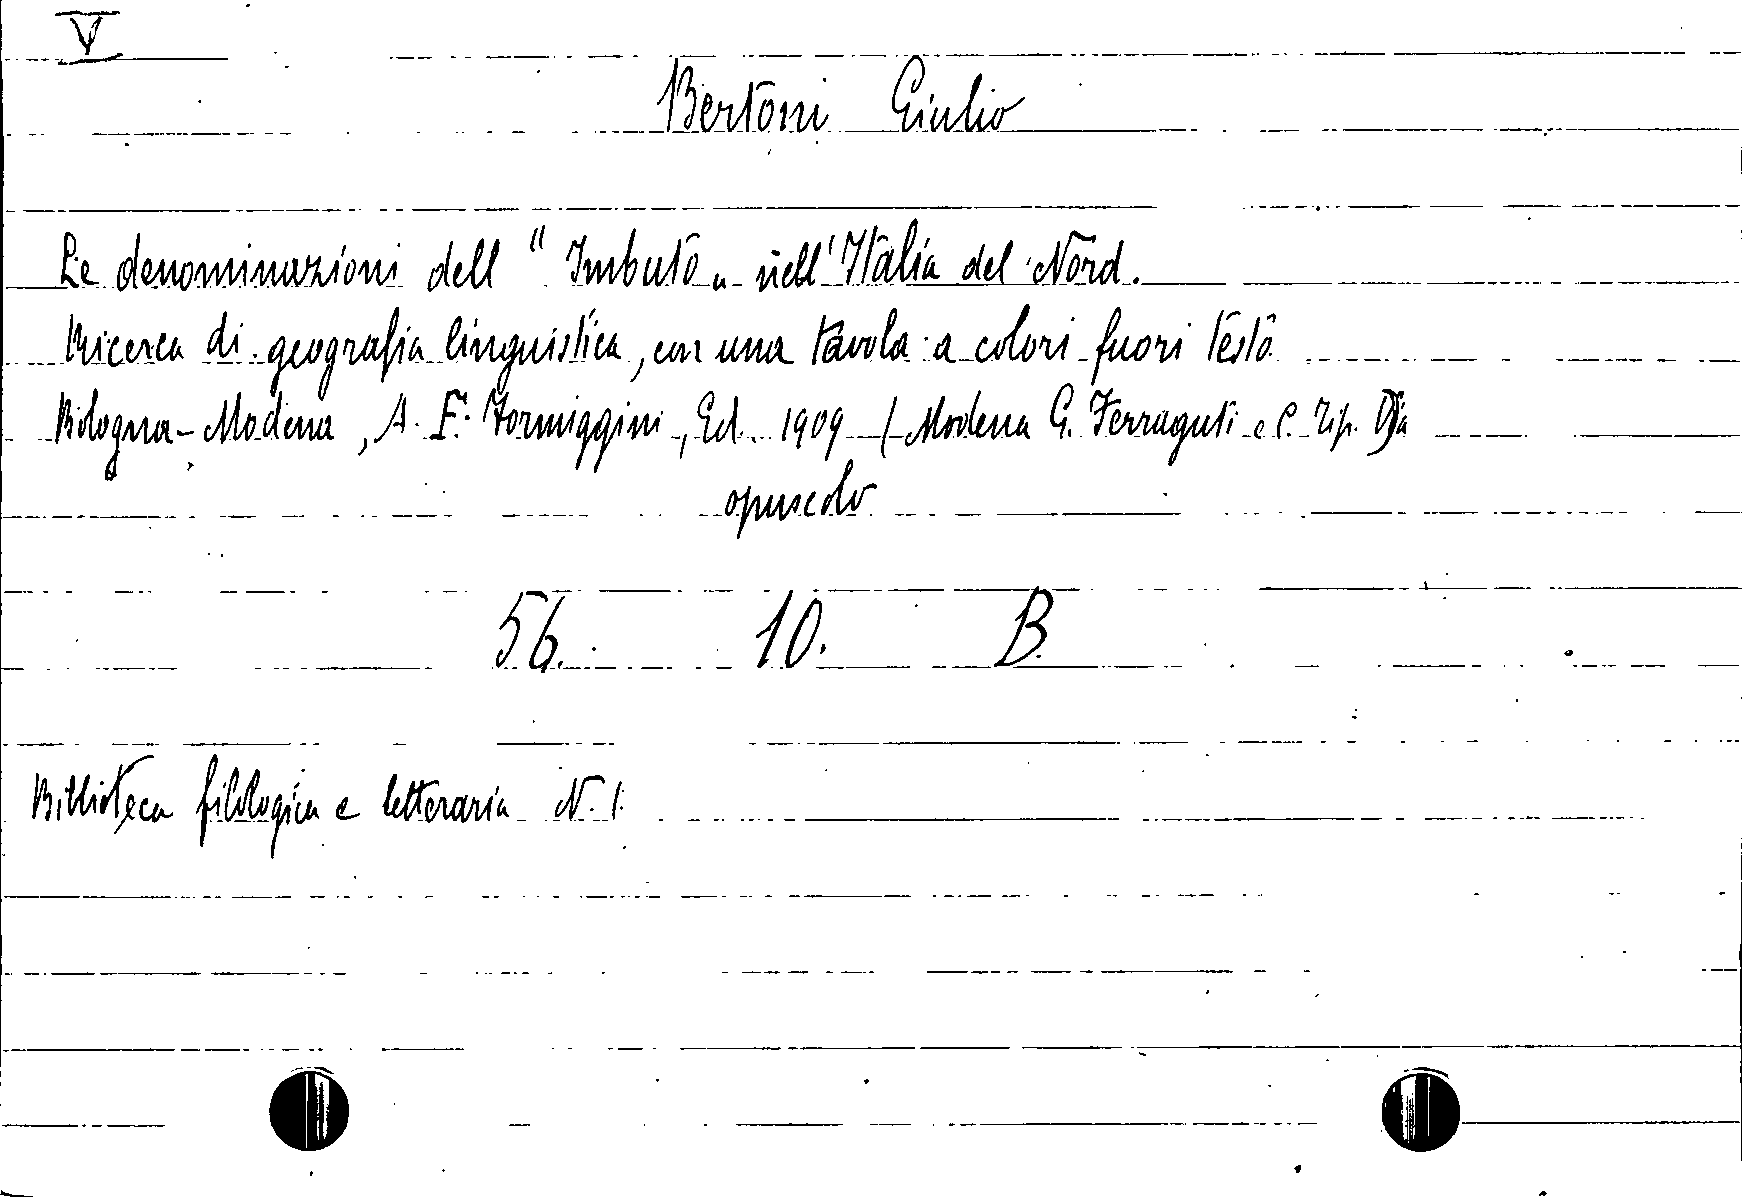 V
Bertoni Giulio
Le denominazioni dell " Imbuto „ nell' Italia del Nord.
Ricerca di geografia linguistica, con una tavola a colori fuori testo
Bologna - Modena, A. F. Formiggini, Ed. 1909 ( Modena G. Ferraguti e C. Tip.
opuscolo
56. 10. B.
Biblioteca filologica e letteraria N. 1.